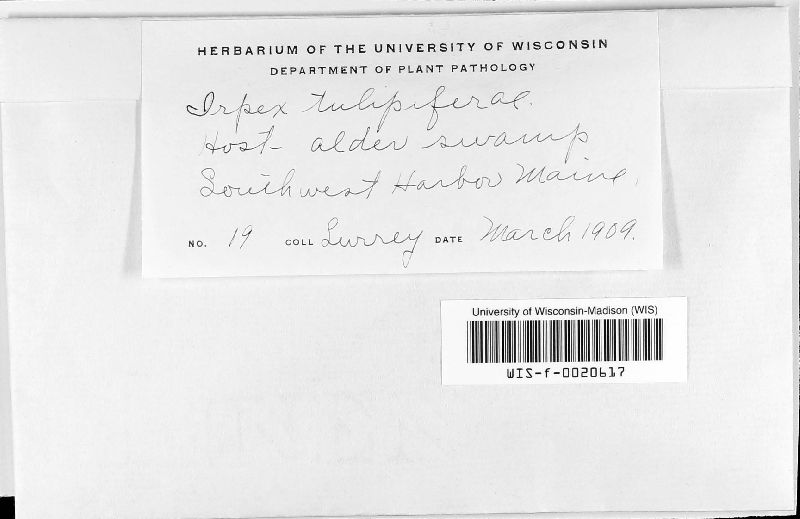 HERBARIUM OF THE UNIVERSITY OF WISCONSIN
DEPARTMENT OF PLANT PATHOLOGY
Irpex tulipiferae.
Host- alder swamp
Southwest Harbor Maine,
NO. 19 COLL Surrey DATE March 1909.
University of Wisconsin-Madison (WIS)
WIS-f-0020617